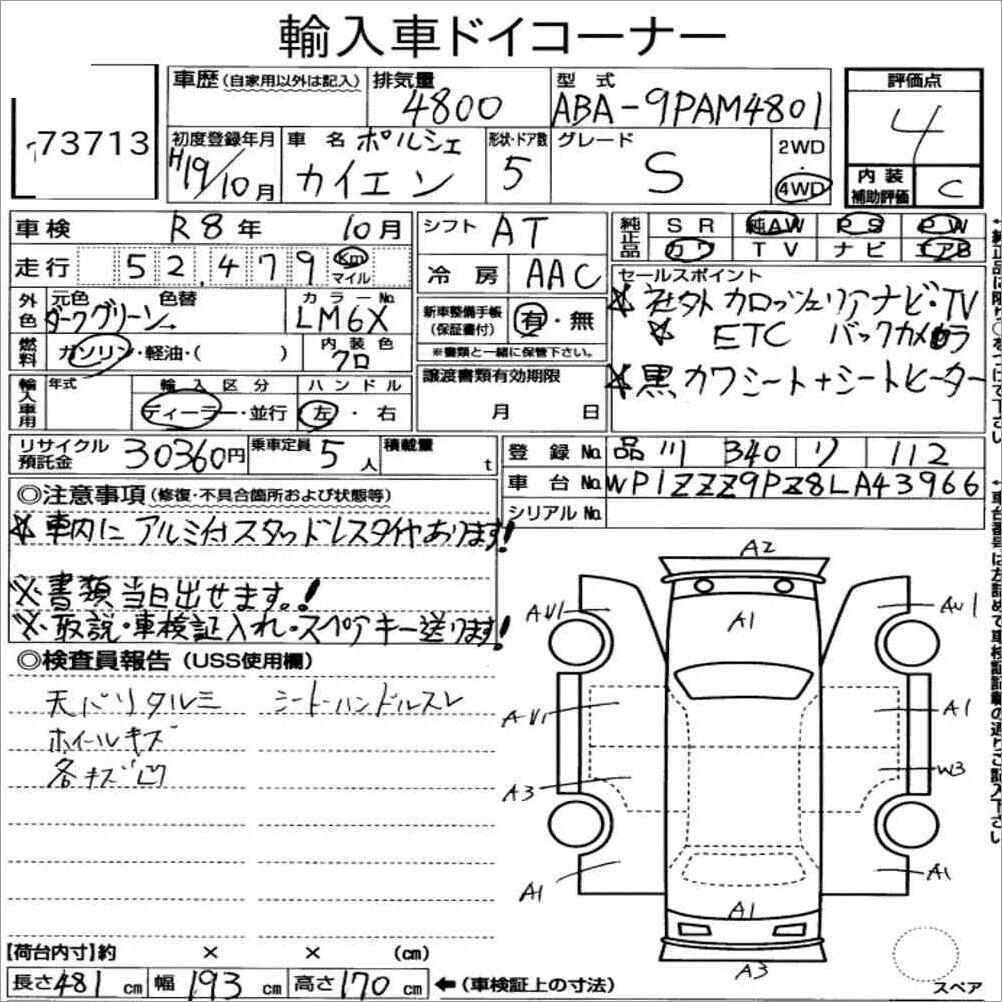 輸入車ドイコーナー
73713
車歴(自家用以外は記入) 排気量 4800 型式 ABA-9PAM4801
評価点 4
内装補助評価 C
初度登録年月 H19/10月 車名 ポルシェ カイエン 形状・ドア数 5 グレード S 2WD・4WD
車検 R8年 10月 シフト AT
純正品 SR 純AW PS PW
カワ TV ナビ エアB
走行 52,479 Km マイル 冷房 AAC
外色 元色 色替 ダークグリーン→ カラーNo. LM6X
燃料 ガソリン・軽油・( ) 内装色 クロ
新車整備手帳(保証書付) 有・無
※書類と一緒に保管下さい。
セールスポイント
☆社外カロッツェリアナビ・TV
☆ ETC バックカメラ
☆黒カワシート+シートヒーター
輸入車用 年式 輸入区分 ディーラー・並行 ハンドル 左・右
譲渡書類有効期限
月 日
リサイクル預託金 30360円 乗車定員 5人 積載量 t
登録No. 品川 340 リ 112
車台No. WP1ZZZ9PZ8LA43966
シリアルNo.
◎注意事項(修復・不具合箇所および状態等)
☆車内にアルミ付スタッドレスタイヤあります!
※書類当日出せます。!
※取説・車検証入れ・スペアキー送ります!
◎検査員報告(USS使用欄)
天バリタルミ シート・ハンドルスレ
ホイールキズ
各キズ凹
A2
AU1 A1 AU1
AU1 A1
A3 W3
A1 A1 A1
A3
スペア
【荷台内寸】約 × × (cm)
長さ481cm 幅193cm 高さ170cm ←(車検証上の寸法)